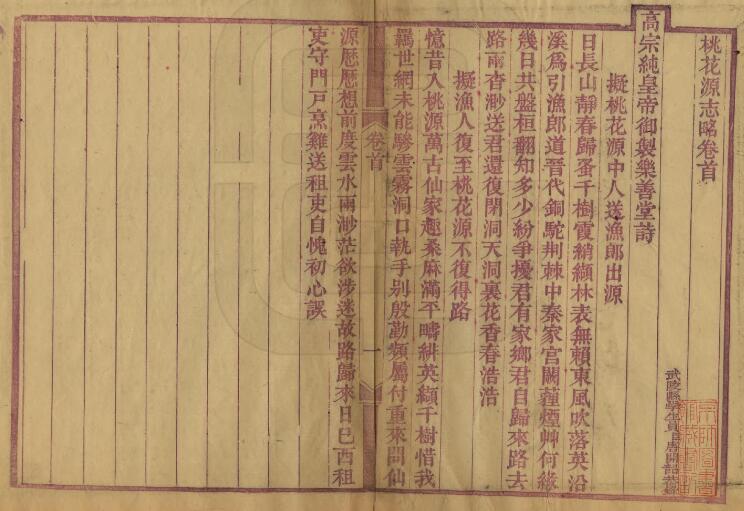 桃花源志略卷首
高宗純皇帝御製樂善堂詩
擬桃花源中人送漁郎出源
日長山靜春歸蚤千樹霞綃纈林表無賴東風吹落英沿
溪爲引漁郎道晉代銅駝荆棘中秦家宮闕蘴煙艸何緣
幾日共盤桓翻知多少紛爭擾君有家鄉君自歸來路去
路兩杳渺送君還復閉洞天洞裏花香春浩浩
擬漁人復至桃花源不復得路
憶昔入桃源萬古仙家趣桑麻滿平疇緋英纈千樹惜我
羈世網未能驂雲霧洞口執手别殷勤頻屬付重來問仙
源歷歷想前度雲水兩渺茫欲涉迷故路歸來日巳西租
吏守門戸烹雞送租吏自愧初心誤
卷首
一